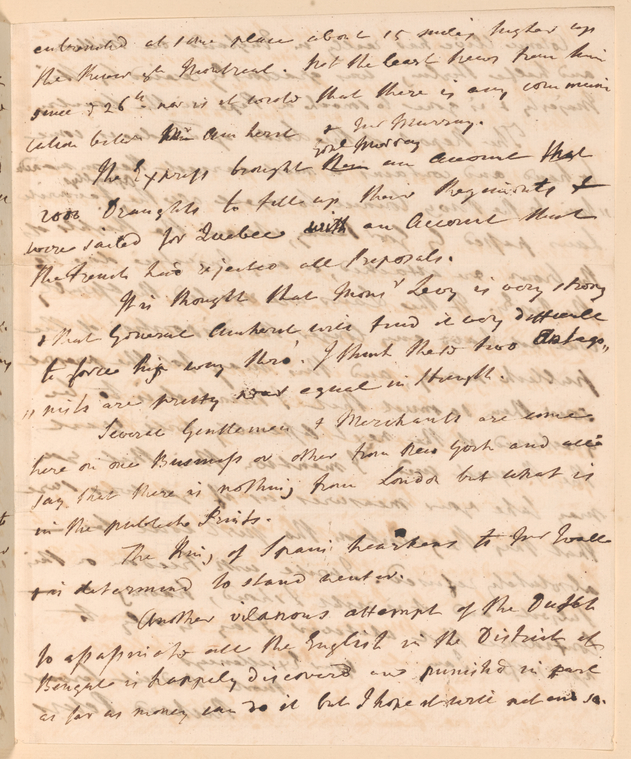 entrenched at some place about 15 miles higher up
the River yn Montreal. Not the least News from him
since ye 26th nor is it wrote that there is any communi
cation betwn him Amherst & Mr Murray.
Genl Murray
The Express brought them an Account that
2000 Draughts to fill up their Regiments &
were sailed for Quebec with an Account that
the French had rejected all Proposals.
It is thought that Monsr Levy is very strong
& that General Amherst will find it very difficult
to force his way thro'. I think these two Antago„
„nists are pretty near equal in strength.
Several Gentlemen & Merchants are come
here on one Business or other from New York and all
say that there is nothing from London but what is
in the publick Prints.
The King of Spain hearkens to Mr Wall
& is determind to stand neuter.
Another vilanous attempt of the Dutch
to assassinate all the English in the District of
Bengale is happely discovered and punished in part
as far as money can do it but I hope it will not end so.